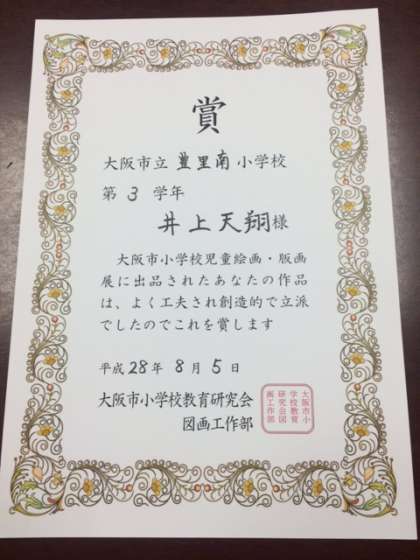 賞
大阪市立 豊里南 小学校
第 3 学年
井上天翔様
大阪市小学校児童絵画・版画
展に出品されたあなたの作品
は、よく工夫され創造的で立派
でしたのでこれを賞します
平成 28 年 8 月 5 日
大阪市小学校教育研究会
図画工作部
大阪市小
学校教育
研究会図
画工作部